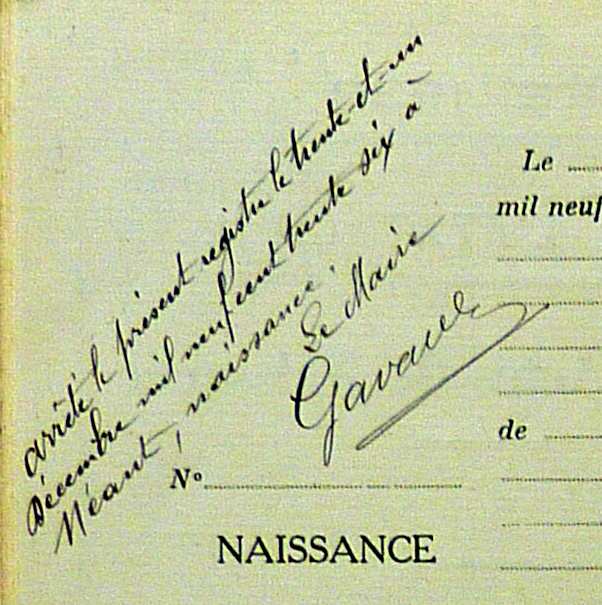 arrêté le présent registre le trente et un
Décembre mil neuf cent trente six à
Néant, naissance.
Le Maire
N°
NAISSANCE
Le
mil neuf
de